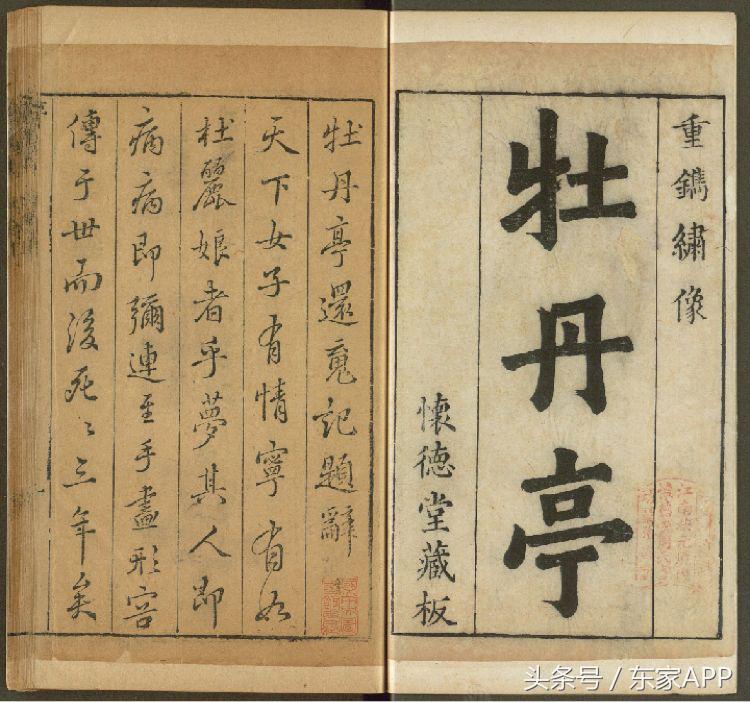 重鐫繡像
牡丹亭
懷德堂藏板
牡丹亭還魂記題辭
天下女子有情寧有如
杜麗娘者乎夢其人即
病病即彌連至手畫形容
傳于世而後死〻三年矣
头条号 / 东家APP